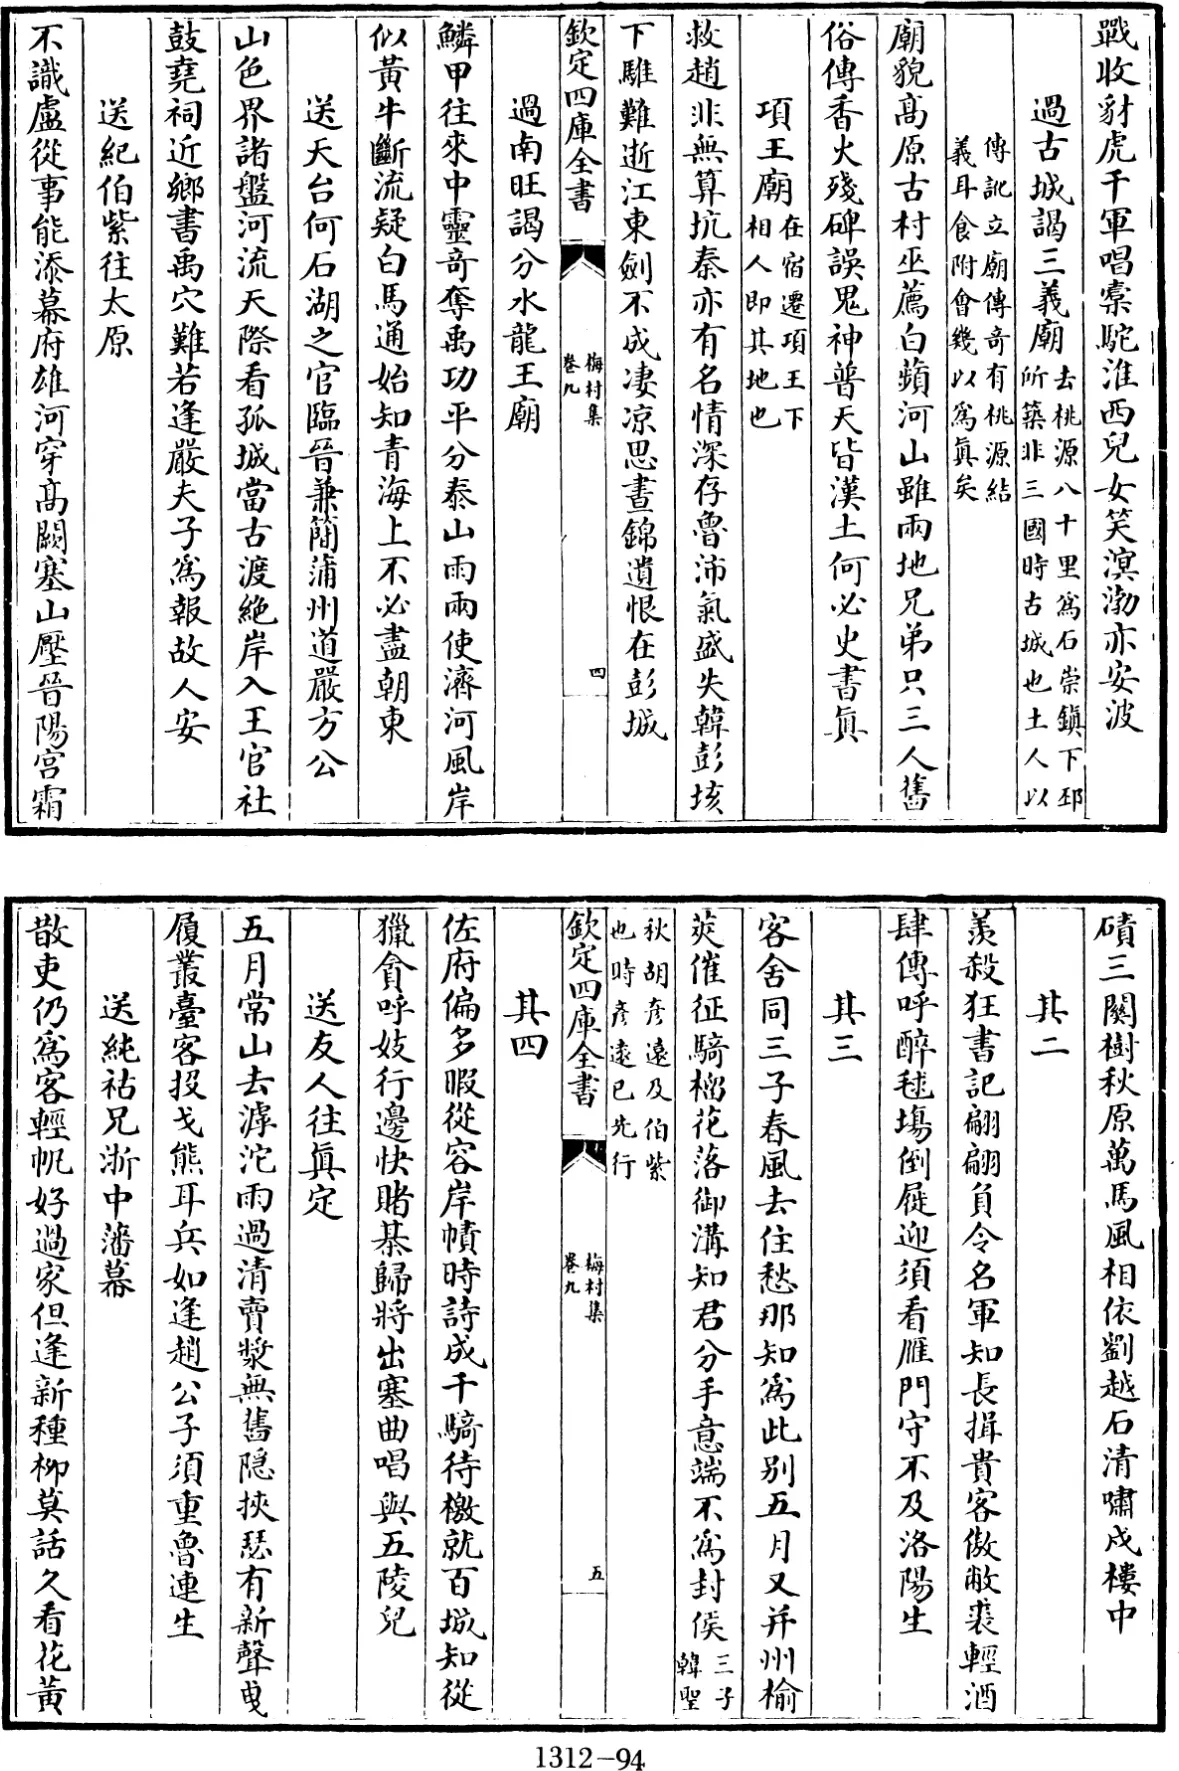 戰收豺虎千軍唱橐駝淮西兒女笑溟渤亦安波
過古城謁三義廟去桃源八十里爲石崇鎭下邳
所築非三國時古城也土人以
傳訛立廟傳奇有桃源結
義耳食附會幾以爲眞矣
廟貌高原古村巫薦白蘋河山雖兩地兄弟只三人舊
俗傳香火殘碑誤鬼神普天皆漢土何必史書眞
項王廟在宿遷項王下
相人即其地也
救趙非無算坑秦亦有名情深存魯沛氣盛失韓彭垓
下騅難逝江東劍不成淒凉思晝錦遺恨在彭城
欽定四庫全書
梅村集
卷九
四
過南旺謁分水龍王廟
鱗甲往來中靈奇奪禹功平分泰山雨兩使濟河風岸
似黃牛斷流疑白馬通始知青海上不必盡朝東
送天台何石湖之官臨晉兼簡蒲州道嚴方公
山色界諸盤河流天際看孤城當古渡絶岸入王官社
鼓堯祠近鄉書禹穴難若逢嚴夫子爲報故人安
送紀伯紫往太原
不識盧從事能添幕府雄河穿高闕塞山壓晉陽宮霜
磧三關樹秋原萬馬風相依劉越石清嘯戍樓中
其二
羨殺狂書記翩翩負令名軍知長揖貴客傲敝裘輕酒
肆傳呼醉毬場倒屣迎須看雁門守不及洛陽生
其三
客舍同三子春風去住愁那知爲此别五月又并州榆
莢催征騎榴花落御溝知君分手意端不爲封侯三子
韓聖
秋胡彥遠及伯紫
也時彥遠已先行
欽定四庫全書
梅村集
卷九
五
其四
佐府偏多暇從容岸幘時詩成千騎待檄就百城知從
獵貪呼妓行邊快賭棊歸將出塞曲唱與五陵兒
送友人往眞定
五月常山去滹沱雨過清賣漿無舊隱挾瑟有新聲曳
履叢臺客投戈熊耳兵如逢趙公子須重魯連生
送純祜兄浙中藩幕
散吏仍爲客輕帆好過家但逢新種柳莫話久看花黃
1312-94